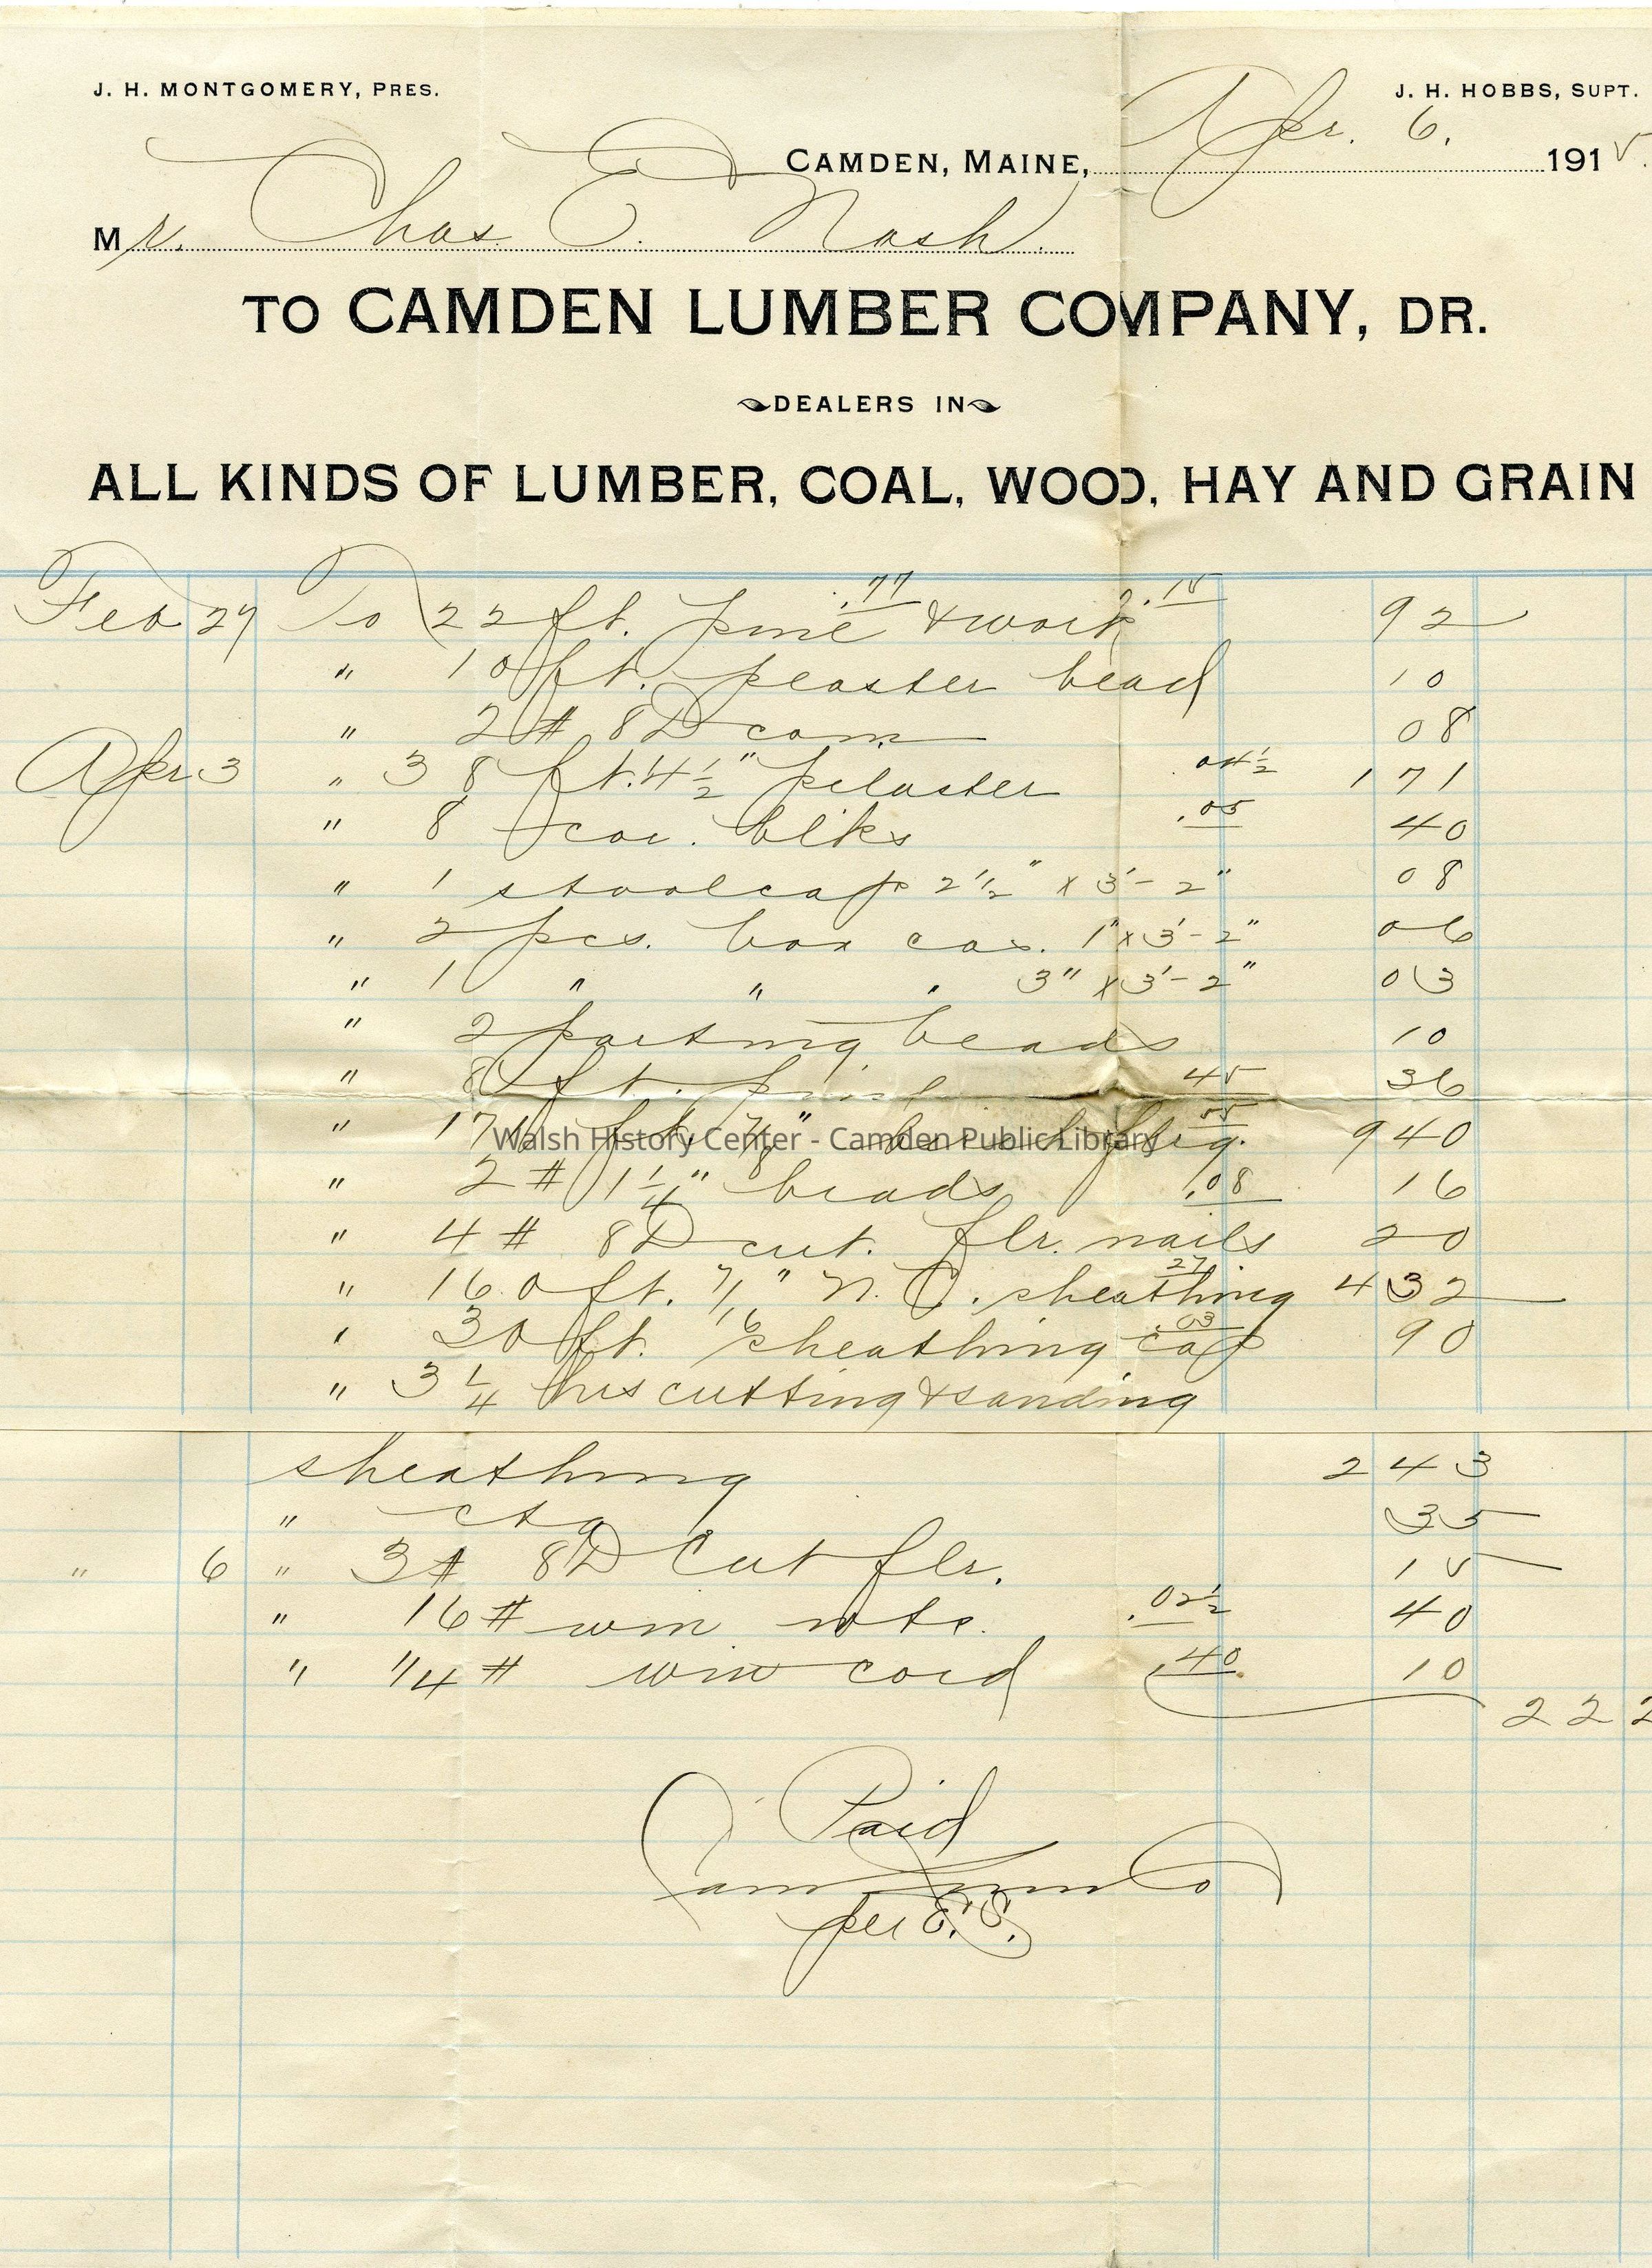 J. H. MONTGOMERY, PRES.
J. H. HOBBS, SUPT.
CAMDEN, MAINE, Apr. 6, 1915.
Mr. Chas. E. Nash.
TO CAMDEN LUMBER COMPANY, DR.
DEALERS IN
ALL KINDS OF LUMBER, COAL, WOOD, HAY AND GRAIN
Feb 27 To 22 ft. pine .77 & work .15 92
" 10 ft. plaster bead 10
" 2 # 8D com 08
Apr 3 " 38 ft. 4½" pilaster .04½ 1 71
" 8 cor. blks .05 40
" 1 stoolcap 2½" x 3'-2" 08
" 2 pcs. box cas. 1" x 3'-2" 06
" 1 " " " 3" x 3'-2" 03
" 2 parting beads 10
" 8 ft. pine 45 36
" ft. 7/8" birch flrg. 55 9 40
" 2 # 1¼" brads .08 16
" 4 # 8D cut. flr. nails 20
" 160 ft. 7/16" N. C. sheathing 27 4 32
" 30 ft. sheathing cap .03 90
" 3¼ hrs cutting & sanding
sheathing 2 43
" ctg 35
" 6 " 3# 8D Cut flr. 15
" 16 # win wts. .02½ 40
" 1/4 # win cord .40 10
22 2
Paid
Cam Lum Co
per E. S.
Walsh History Center - Camden Public Library